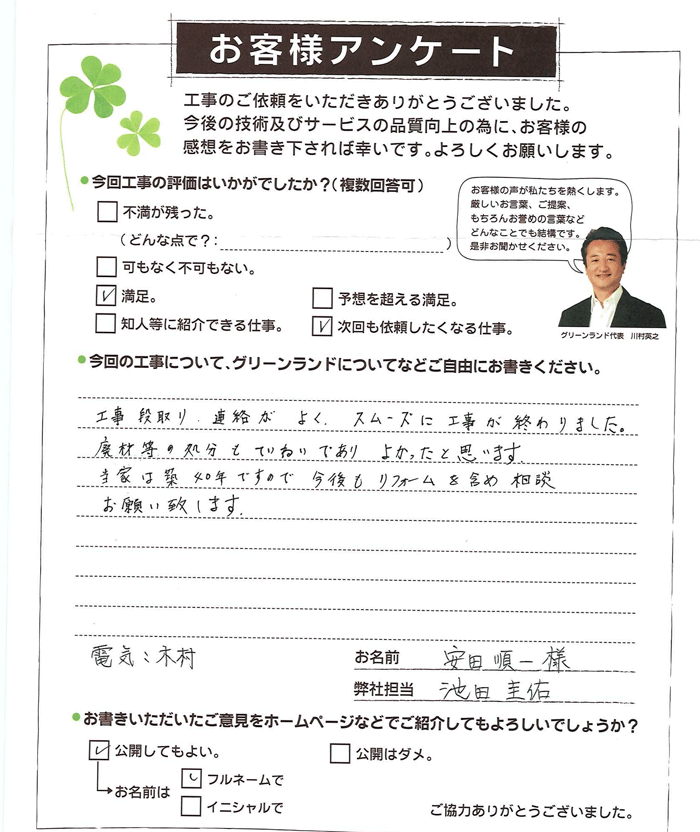 お客様アンケート
工事のご依頼をいただきありがとうございました。
今後の技術及びサービスの品質向上の為に、お客様の
感想をお書き下されば幸いです。よろしくお願いします。
●今回工事の評価はいかがでしたか？（複数回答可）
不満が残った。
（どんな点で？：　）
可もなく不可もない。
満足。
予想を超える満足。
知人等に紹介できる仕事。
次回も依頼したくなる仕事。
お客様の声が私たちを熱くします。
厳しいお言葉、ご提案、
もちろんお誉めの言葉など
どんなことでも結構です。
是非お聞かせください。
グリーンランド代表　川村英之
●今回の工事について、グリーンランドについてなどご自由にお書きください。
工事段取り、連絡がよく、スムーズに工事が終わりました。
廃材等の処分もていねいであり よかったと思います
当家は築40年ですので 今後もリフォームを含め相談
お願い致します.
電気：木村
お名前　安田順一様
弊社担当　池田圭佑
●お書きいただいたご意見をホームページなどでご紹介してもよろしいでしょうか？
公開してもよい。
公開はダメ。
お名前は
フルネームで
イニシャルで
ご協力ありがとうございました。